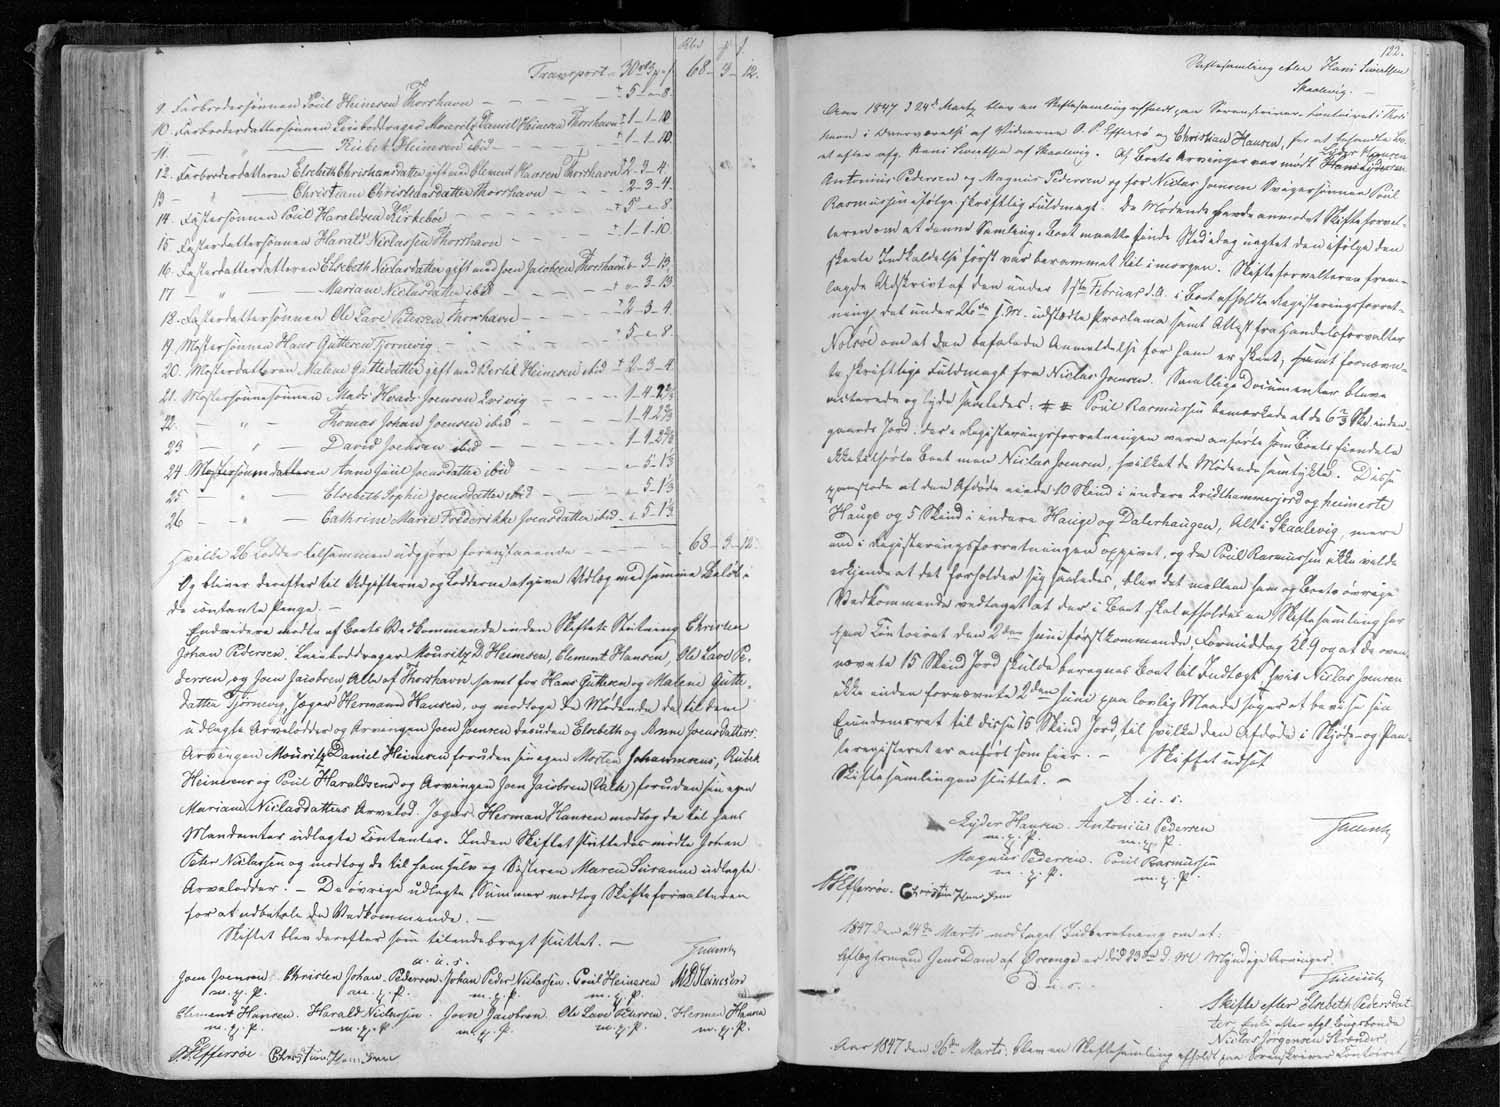 Rbd ₰ ß.
Transport 68 - 3 - 12.
9. Farbrodersönnen Poül Heinesen Thorshavn - - - - 5 - " - 8
10. Farbroderdattersönnen Leiebeddrager Mouritz Daniel Heinesen Thorshavn 1 - 1 - 10
11. " " Rubek Heinesen ibid 1 - 1 - 10
12. Farbroderdatteren Elsebeth Christiansdatter gift med Clement Hansen Thorshavn 2 - 3 - 4
13 - " - Christiane Christiansdatter Thorshavn - 2 - 3 - 4
14. Fastersönnen Poül Haraldsen Kirkeboe - - 5 - " - 8
15. Fasterdattersönnen Harald Niclassen Thorshavn - - 1 - 1 - 10
16. Fasterdatterdatteren Elsebeth Niclasdatter gift med Joen Jacobsen Thorshavn " - 3 - 13
17 - " - Mariane Niclasdatter ibid " - 3 - 13
18. Fasterdattersönnen Ole Lave Petersen Thorshavn - 2 - 3 - 4
19. Mostersönnen Hans Guttesen Tjörnevig - - 5 - " - 8
20. Mosterdatteren Malene Guttesdatter gift med Bertel Heinesen ibid 2 - 3 - 4
21. Mostersönnesönnen Mads Hvads Joensen Qvivig - - 1 - 4 - 2⅔
22. - " - Thomas Johan Joensen ibid - 1 - 4 - 2⅔
23 - " - David Joensen ibid - 1 - 4 - 2⅔
24. Mostersönnedatteren Anne Joensdatter ibid " - 5 - 1⅓
25 - " - Elsebeth Sophie Joensdatter ibid - " - 5 - 1⅓
26 - " - Cathrine Marie Frederikke Joensdatter ibid - " - 5 - 1⅓
hvilke 26 Lodder tilsammen udgjöre forenstaaende - - 68 - 3 - 12.
Og bliver derefter til Udgifterne og Lodderne at gjöre Udlæg med samme Belöb i
de contante Penge. -
Endvidere mödte af Boets Vedkommende inden Skiftets Slutning Christen
Johan Pedersen, Leiebeddrager Mouritz D Heinesen, Clement Hansen, Ole Lave Pe-
dersen, og Joen Jacobsen Alle af Thorshavn samt for Hans Guttesen og Malene Gutte-
datter Tjörnevig, Jæger Hermann Hansen, og modtoge de Mödende de til dem
udlagte Arvelodder og Arvingen Joen Joensen desuden Elsebeth og Anne Joensdatters.
Arvingen Mouritz Daniel Heinesen foruden sin egen Morten Johannesens, Rubek
Heinesens og Poül Haraldsens og Arvingen Joen Jacobsen foruden sin egen
Mariane Niclasdatters Arvelod. Jæger Herman Hansen modtog de til hans
Mandanter udlagte Contanter. Inden Skiftet sluttedes mödte Johan
Peter Niclassen og modtog de til ham selv og Sösteren Maren Susanne udlagte
Arvelodder. - De övrige udlagte Summer modtog Skifteforvalteren
for at udbetale de Vedkommende. -
Skiftet blev derefter som tilendebragt sluttet. -
a. u. s.
Joen Joensen Christen Johan Pedersen Johan Peder Niclassen. Poül Heinesen M D Heinesen
m. f. P. m. f. P. m. f. P. m. f. P.
Clement Hansen. Harald Niclassen. Joen Jacobsen. Ole Lave Petersen. Hermen Hansen
m. f. P. m. f. P. m. f. P. m. f. P. m. f. P.
Effersöe. Christian Hansen
122.
Skiftesamling efter Hans Sivertsen
Skaalevig. -
Aar 1847 d 24de Martz blev en Skiftesamling afholdt paa Sorenskriver Contoiret i Thors-
havn i Overværelse af Vidnerne P. Effersö og Christian Hansen, for at behandle Bo-
et efter afg. Hans Sivertsen af Skaalevig. Af Boets Arvinger var mödt Lyder Hansen
Antonius Pedersen og Magnus Pedersen og for Niclas Joensen Svigersönnen Poül
Rasmussen ifölge skriftlig Fuldmagt. De Mödende havde anmodet Skifteforval-
teren om at denne Samling i Boet maatte finde Sted idag uagtet den ifölge den
skeete Indkaldelse först var berammet til imorgen. Skifteforvalteren frem-
lagde Udskrift af den under 1ste Februar d. A. i Boet afholdte Registreringsforret-
ning, det under 26de s. M. udstædte Proclama samt Attest fra Handelsforvalter
Nolsöe om at den befalede Anmeldelse for ham er skeet, samt fornævn-
te skriftlige Fuldmagt fra Niclas Joensen. Samtlige Documenter bleve
acterede og lyde saaledes: Poül Rasmussen bemærkede at de 6⅔ Skd inden-
gaards Jord, der i Registreringsforretningen vare anförte som Boets Eiendele
ikke tilhörte Boet men Niclas Joensen, hvilket de Mödende samtykte. Disse
paastode at den Afdöde eiede 10 Skind i
Hauge og 5 Skind i indere Hauge og Dalerhaugen, Alt i Skaalevig, mere
end i Registreringsforretningen opgivet, og da Poül Rasmussen ikke vilde
erkjende at det forholder sig saaledes, blev det mellem ham og Boets övrige
Vedkommende vedtaget at der i Boet skal afholdes en Skiftesamling her
paa Contoiret den 2den Juni förstkommende, Formiddag Kl. 9 og at de oven-
nævnte 15 Skind Jord skulde beregnes Boet til Indtægt, hvis Niclas Joensen
ikke inden fornævnte 2den Juni paa lovlig Maade söger at bevise sin
Eiendomsret til disse 15 Skind Jord, til hvilke den Afdöde i Skjöde- og Pan-
teregisteret er anfört som Eier. - Skiftet udsat
Skiftesamlingen sluttet. -
A. u. s.
Lyder Hansen. Antonius Pedersen
m. f. P. m. f. P.
Magnus Pedersen. Poül Rasmussen
m. f. P. m. f. P.
Effersöe. Christian Hansen
1847 den 24de Marts modtaget Indberetning om at:
Aftægtsmand Jens Dam af Öreringe er död 23de d. M. Myndige Arvinger.
D. u. s.
Skifte efter Elsebeth Pedersdat-
ter, Enke efter afgl. Kongsbonde
Niclas Jörgensen Strönder
Aar 1847 den 26de Marts blev en Skiftesamling afholdt paa Sorenskriver Contoiret